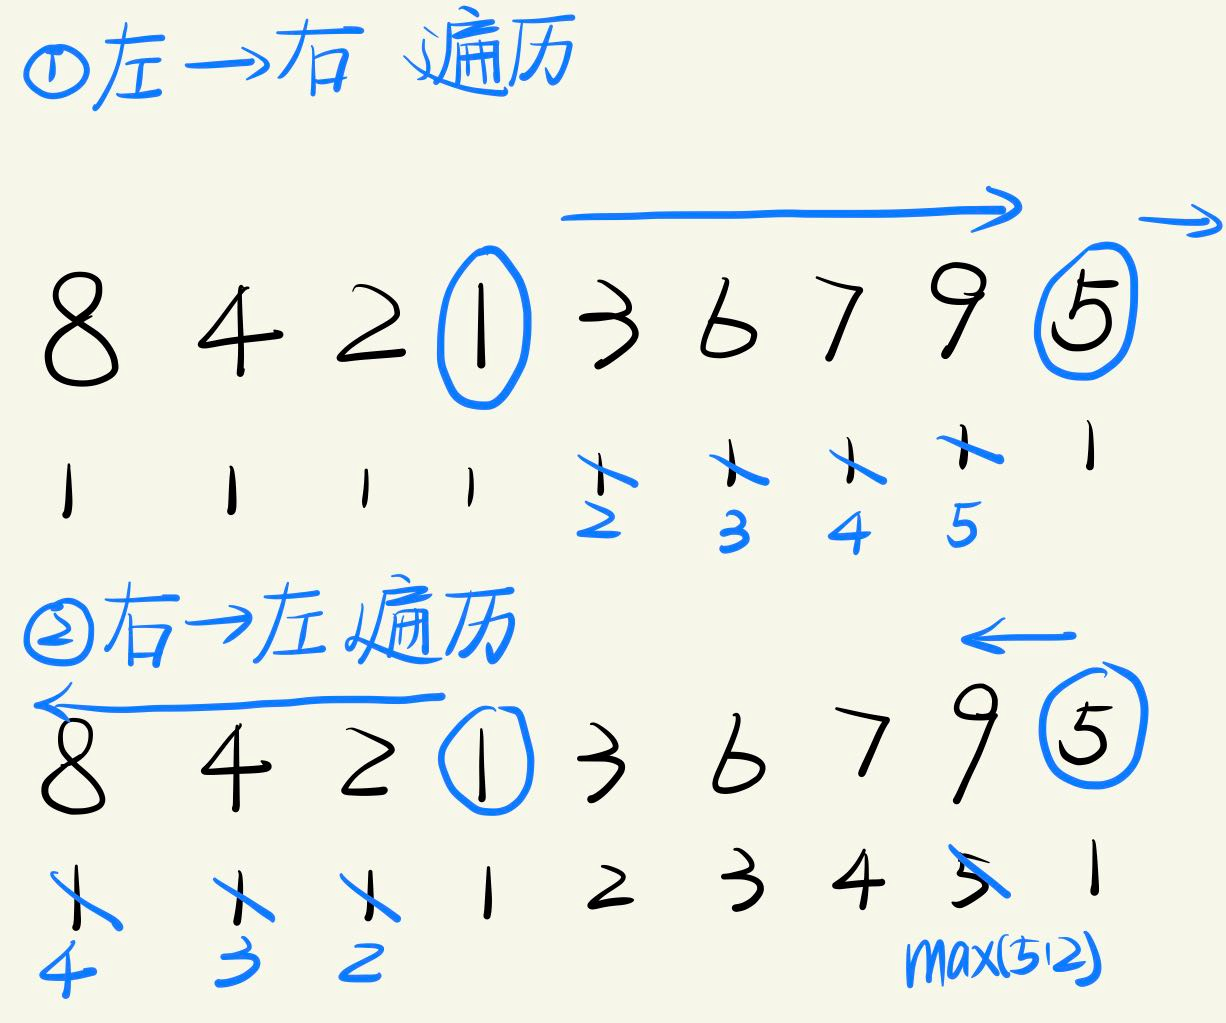 ①左→右 遍历
8 4 2 1 3 6 7 9 5
1 1 1 1 1 1 1 1 1
2 3 4 5
②右→左遍历
8 4 2 1 3 6 7 9 5
1 1 1 1 2 3 4 5 1
4 3 2 max(5,2)